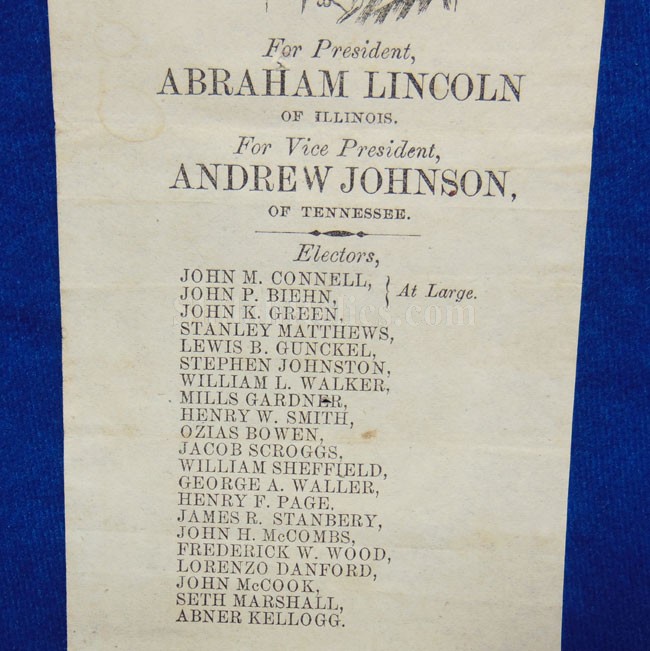 For President,
ABRAHAM LINCOLN
OF ILLINOIS.
For Vice President,
ANDREW JOHNSON,
OF TENNESSEE.
Electors,
JOHN M. CONNELL,
JOHN P. BIEHN, } At Large.
JOHN K. GREEN,
STANLEY MATTHEWS,
LEWIS B. GUNCKEL,
STEPHEN JOHNSTON,
WILLIAM L. WALKER,
MILLS GARDNER,
HENRY W. SMITH,
OZIAS BOWEN,
JACOB SCROGGS,
WILLIAM SHEFFIELD,
GEORGE A. WALLER,
HENRY F. PAGE,
JAMES R. STANBERY,
JOHN H. McCOMBS,
FREDERICK W. WOOD,
LORENZO DANFORD,
JOHN McCOOK,
SETH MARSHALL,
ABNER KELLOGG.